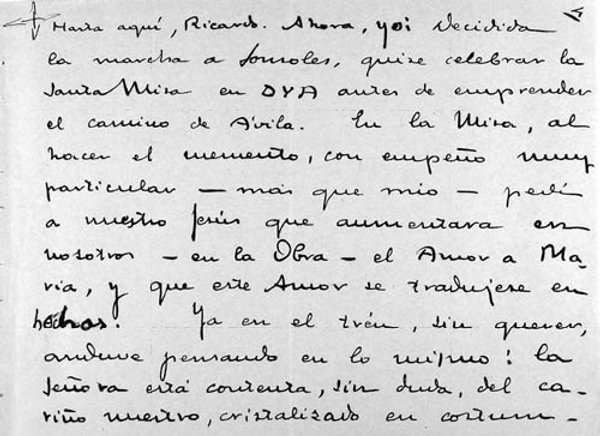 Hasta aquí, Ricardo. Ahora, yo: Decidida
la marcha a Sonsoles, quise celebrar la
Santa Misa en DYA antes de emprender
el camino de Avila. En la Misa, al
hacer el memento, con empeño muy
particular — más que mío — pedí
a nuestro Jesús que aumentara en
nosotros — en la Obra — el Amor a Ma-
ría, y que este Amor se tradujese en
hechos. Ya en el trén, sin querer,
anduve pensando en lo mismo: la
Señora está contenta, sin duda, del ca-
riño nuestro, cristalizado en costum-